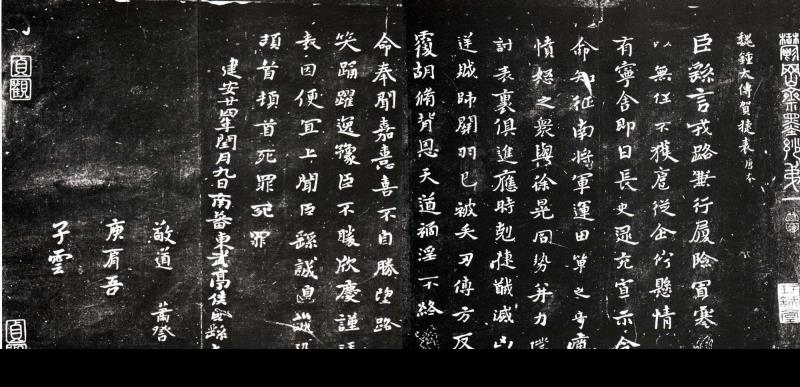 鬱岡齋墨妙第一
魏鍾太傅賀捷表 唐本
臣繇言戎路兼行履險冒寒
以無任不獲扈從企佇懸情
有寧舍即日長史逯充宣示令
命知征南將軍運田單之奇厲
憤怒之衆與徐晃同勢并力撲
討表裏俱進應時剋捷馘滅凶
逆賊帥關羽已被矢刃傅方反
覆胡脩背恩天道禍淫不終
命奉聞嘉憙喜不自勝望路
笑踊躍逸豫臣不勝欣慶謹
表因便宜上聞臣繇誠皇誠恐
頓首頓首死罪死罪
建安廿四年閏月九日南蕃東武亭侯臣繇
敬道 蕭登
庾肩吾
子雲
貞觀